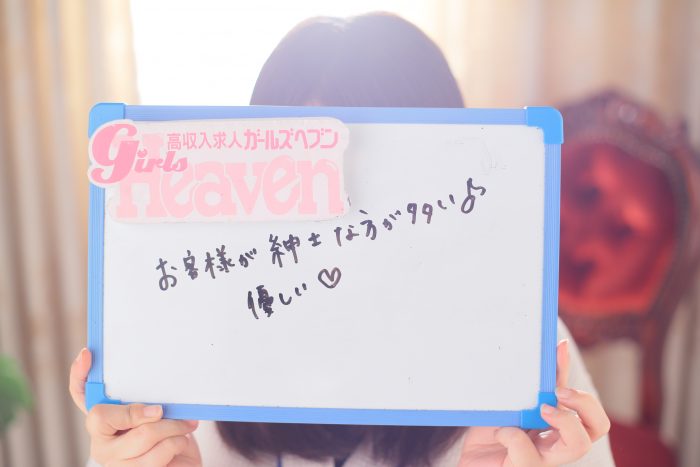 高収入求人ガールズヘブン
Girls
Heaven
お客様が紳士な方が多い♪
優しい♡